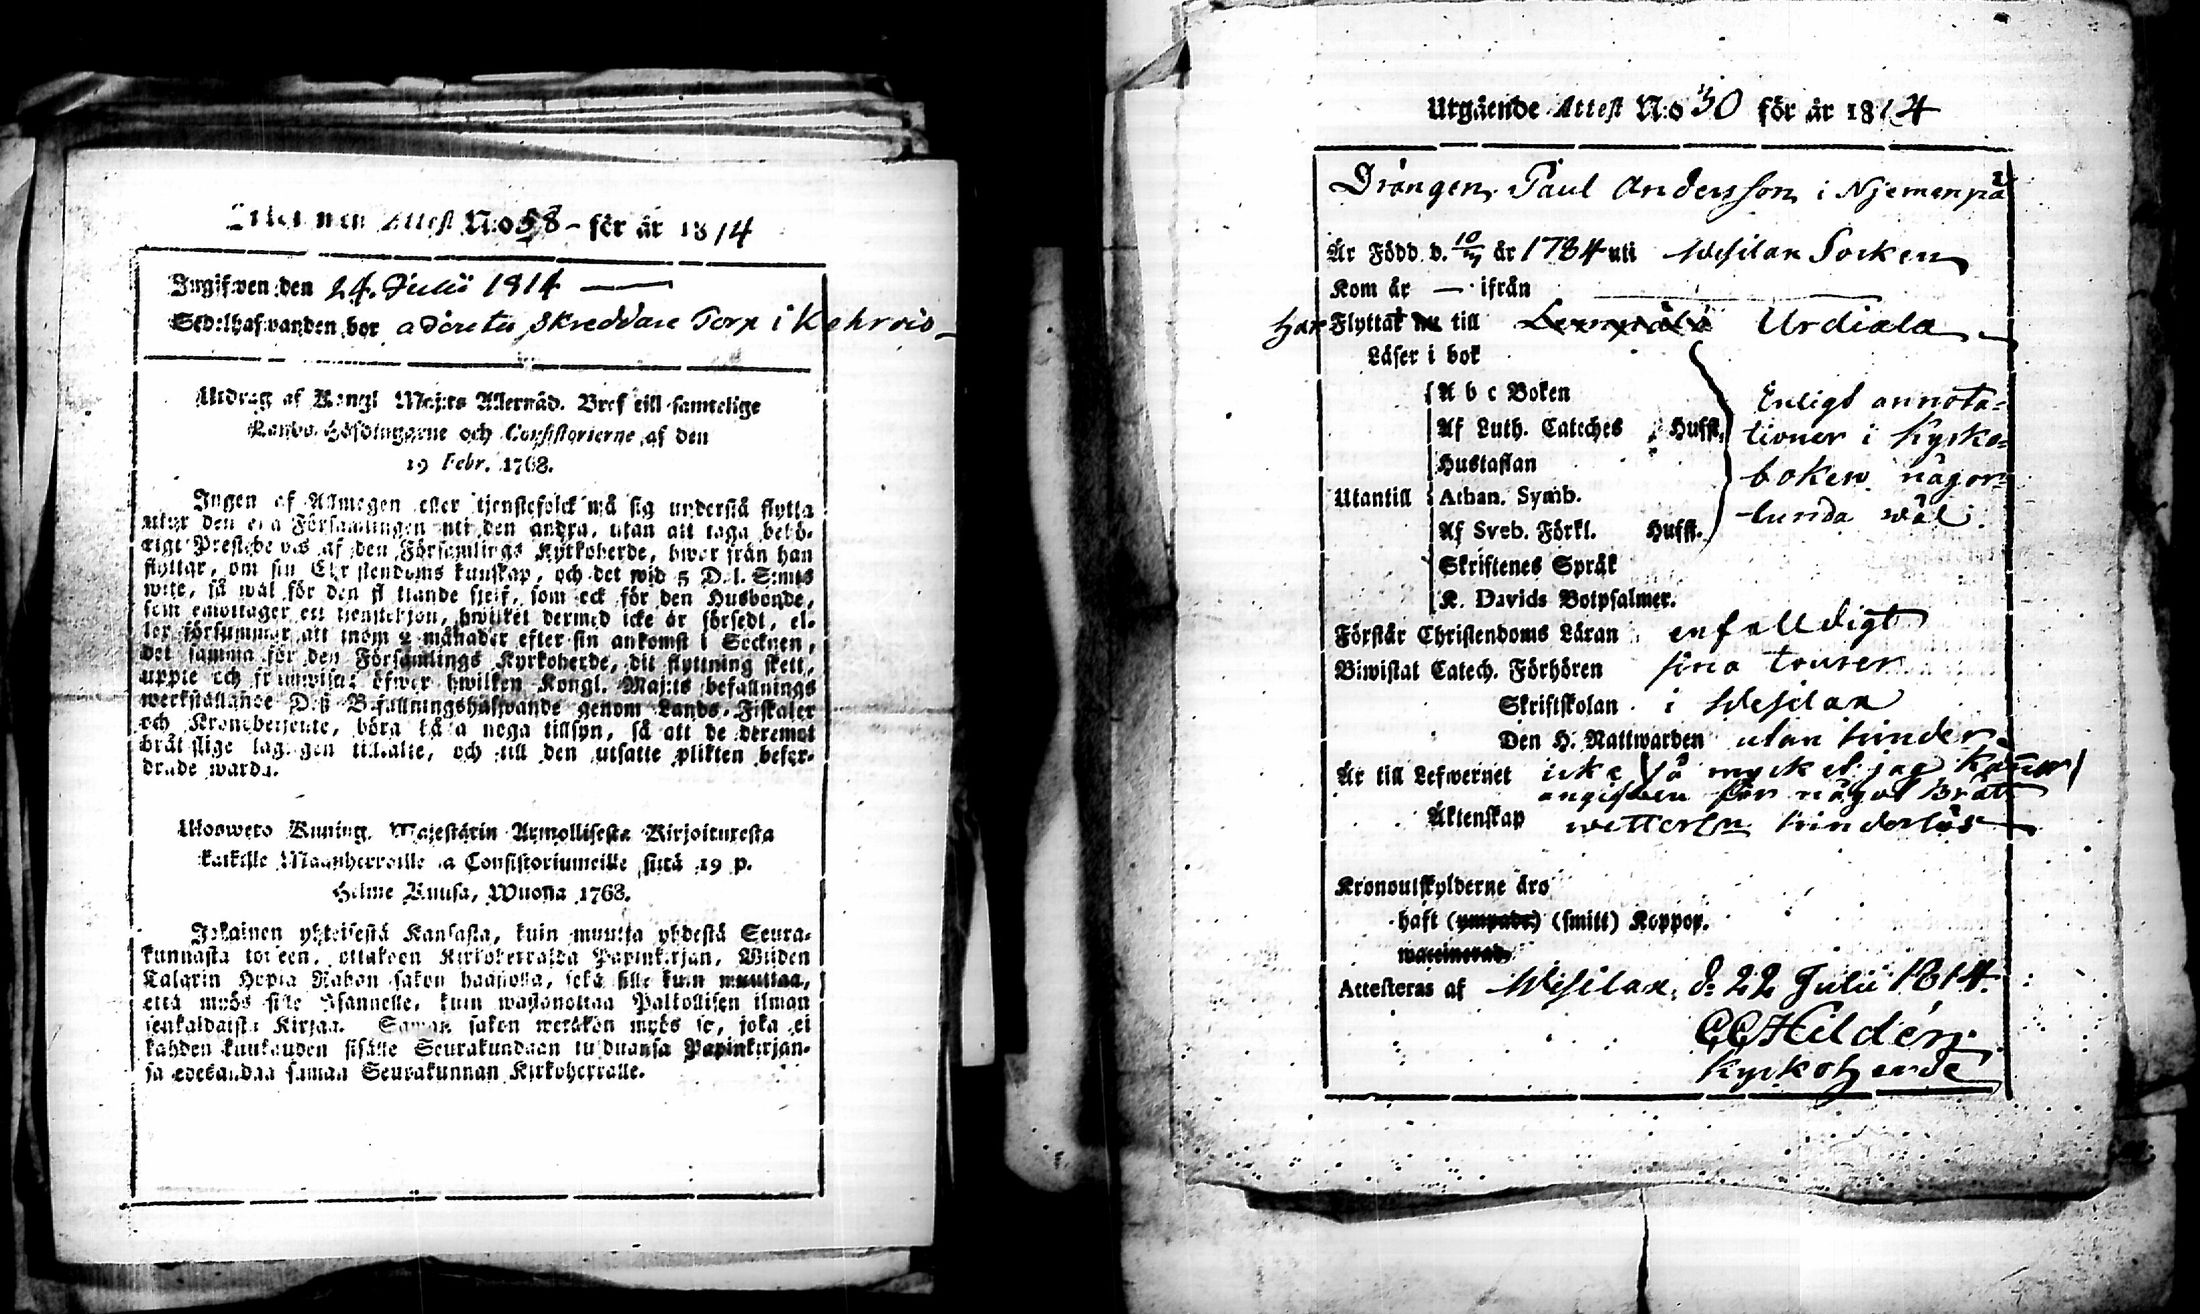 Attest N:o 58 - för år 1814
Ingifwen den 24. Julii 1814
Sedelhafwanden bor Skreddare Torp i Kehrois
Utdrag af Kongl Maj:ts Allernåd. Bref till samtelige
Lands-Höfdingarne och Consistorierne af den
19 Febr. 1768.
Ingen af Allmogen eller tjenstefolck må sig understå flytta
utur den ena Församlingen uti den andra, utan att taga behö-
rigt Prestebevis af den Församlings Kyrkoherde, hwar från han
flyttar, om sin Christendoms kunskap, och det wid 5 Dal. S:mts
wite, så wäl för den flyttande sielf, som ock för den Husbonde,
som emottager ett tjenstehjon, hwilket dermed icke är försedt, el-
ler försummar att inom 2 månader efter sin ankomst i Socknen,
det samma för den Församlings Kyrkoherde, dit flyttning skett,
uppte och framwisa: öfwer hwilken Kongl. Maj:ts befallnings
werkställande Dess Befallningshafwande genom Lands-Fiskaler
och Kronobetjente, böra låta noga tillsyn, så att de deremot
bråtslige lagligen tilltalte, och till den utsatte plikten befor-
drade warda.
Ulosweto Kuning. Majestätin Armollisesta Kirjoituresta
kaikille Maanherroille ja Consistoriumeille siitä 19 p.
Helme Kuusa, Wuonna 1768.
Jokainen yhteisestä Kansasta, kuin muutta yhdestä Seura-
kunnasta toiseen, ottakoon Kirkoherralda Papinkirjan, Wiiden
Talarin Hopia Rahan sakon haastolla, sekä sille kuin muuttaa,
että myös sille Isännelle, kuin wastanottaa Palkollisen ilman
senkaldaista Kirjaa. Saman sakon wetäkön myös se, joka ei
kahden kuukauden sisälle Seurakundaan tulduansa Papinkirjan-
sa edesandaa saman Seurakunnan Kirkoherralle.
Utgående Attest N:o 30 för år 1814
Drängen Paul Andersson i Njemenpä
Är Född d. 10/7 år 1784 uti Wesilax Socken
Kom år — ifrån
har Flyttat nu till Lempälä Urdiala
Läser i bok
A b c Boken
Af Luth. Cateches Hufst.
Hustaflan
Utantill Athan. Symb.
Af Sveb. Förkl. Hufst.
Skriftenes Språk
K. Davids Botpsalmer.
Enligt annota=
tioner i Kyrko=
boken någor=
lunda wäl.
Förstår Christendoms Läran enfalldigt
Biwistat Catech. Förhören sina tourer
Skriftskolan i Wesilax
Den H. Nattwarden utan hinder
Är till Lefwernet icke så mycket jag känner
angifwen för något Brott
Äktenskap wetterl:n hinderlös
Kronoutskylderne äro
haft (ympade) (smitt) Koppor.
waccinerad.
Attesteras af Wesilax, d: 22 Julii 1814.
CCHeldén
Kyrkoherde